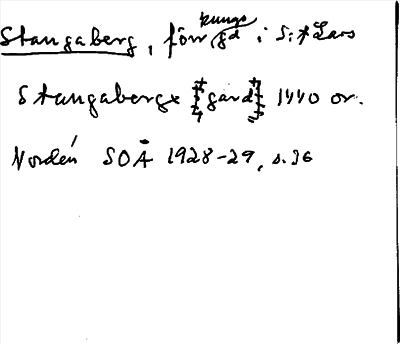 Stangaberg, förr kungsgd i S:t Lars
Stangabergx [gard] 1440 or.
Nordén SOÅ 1928-29, s. 36